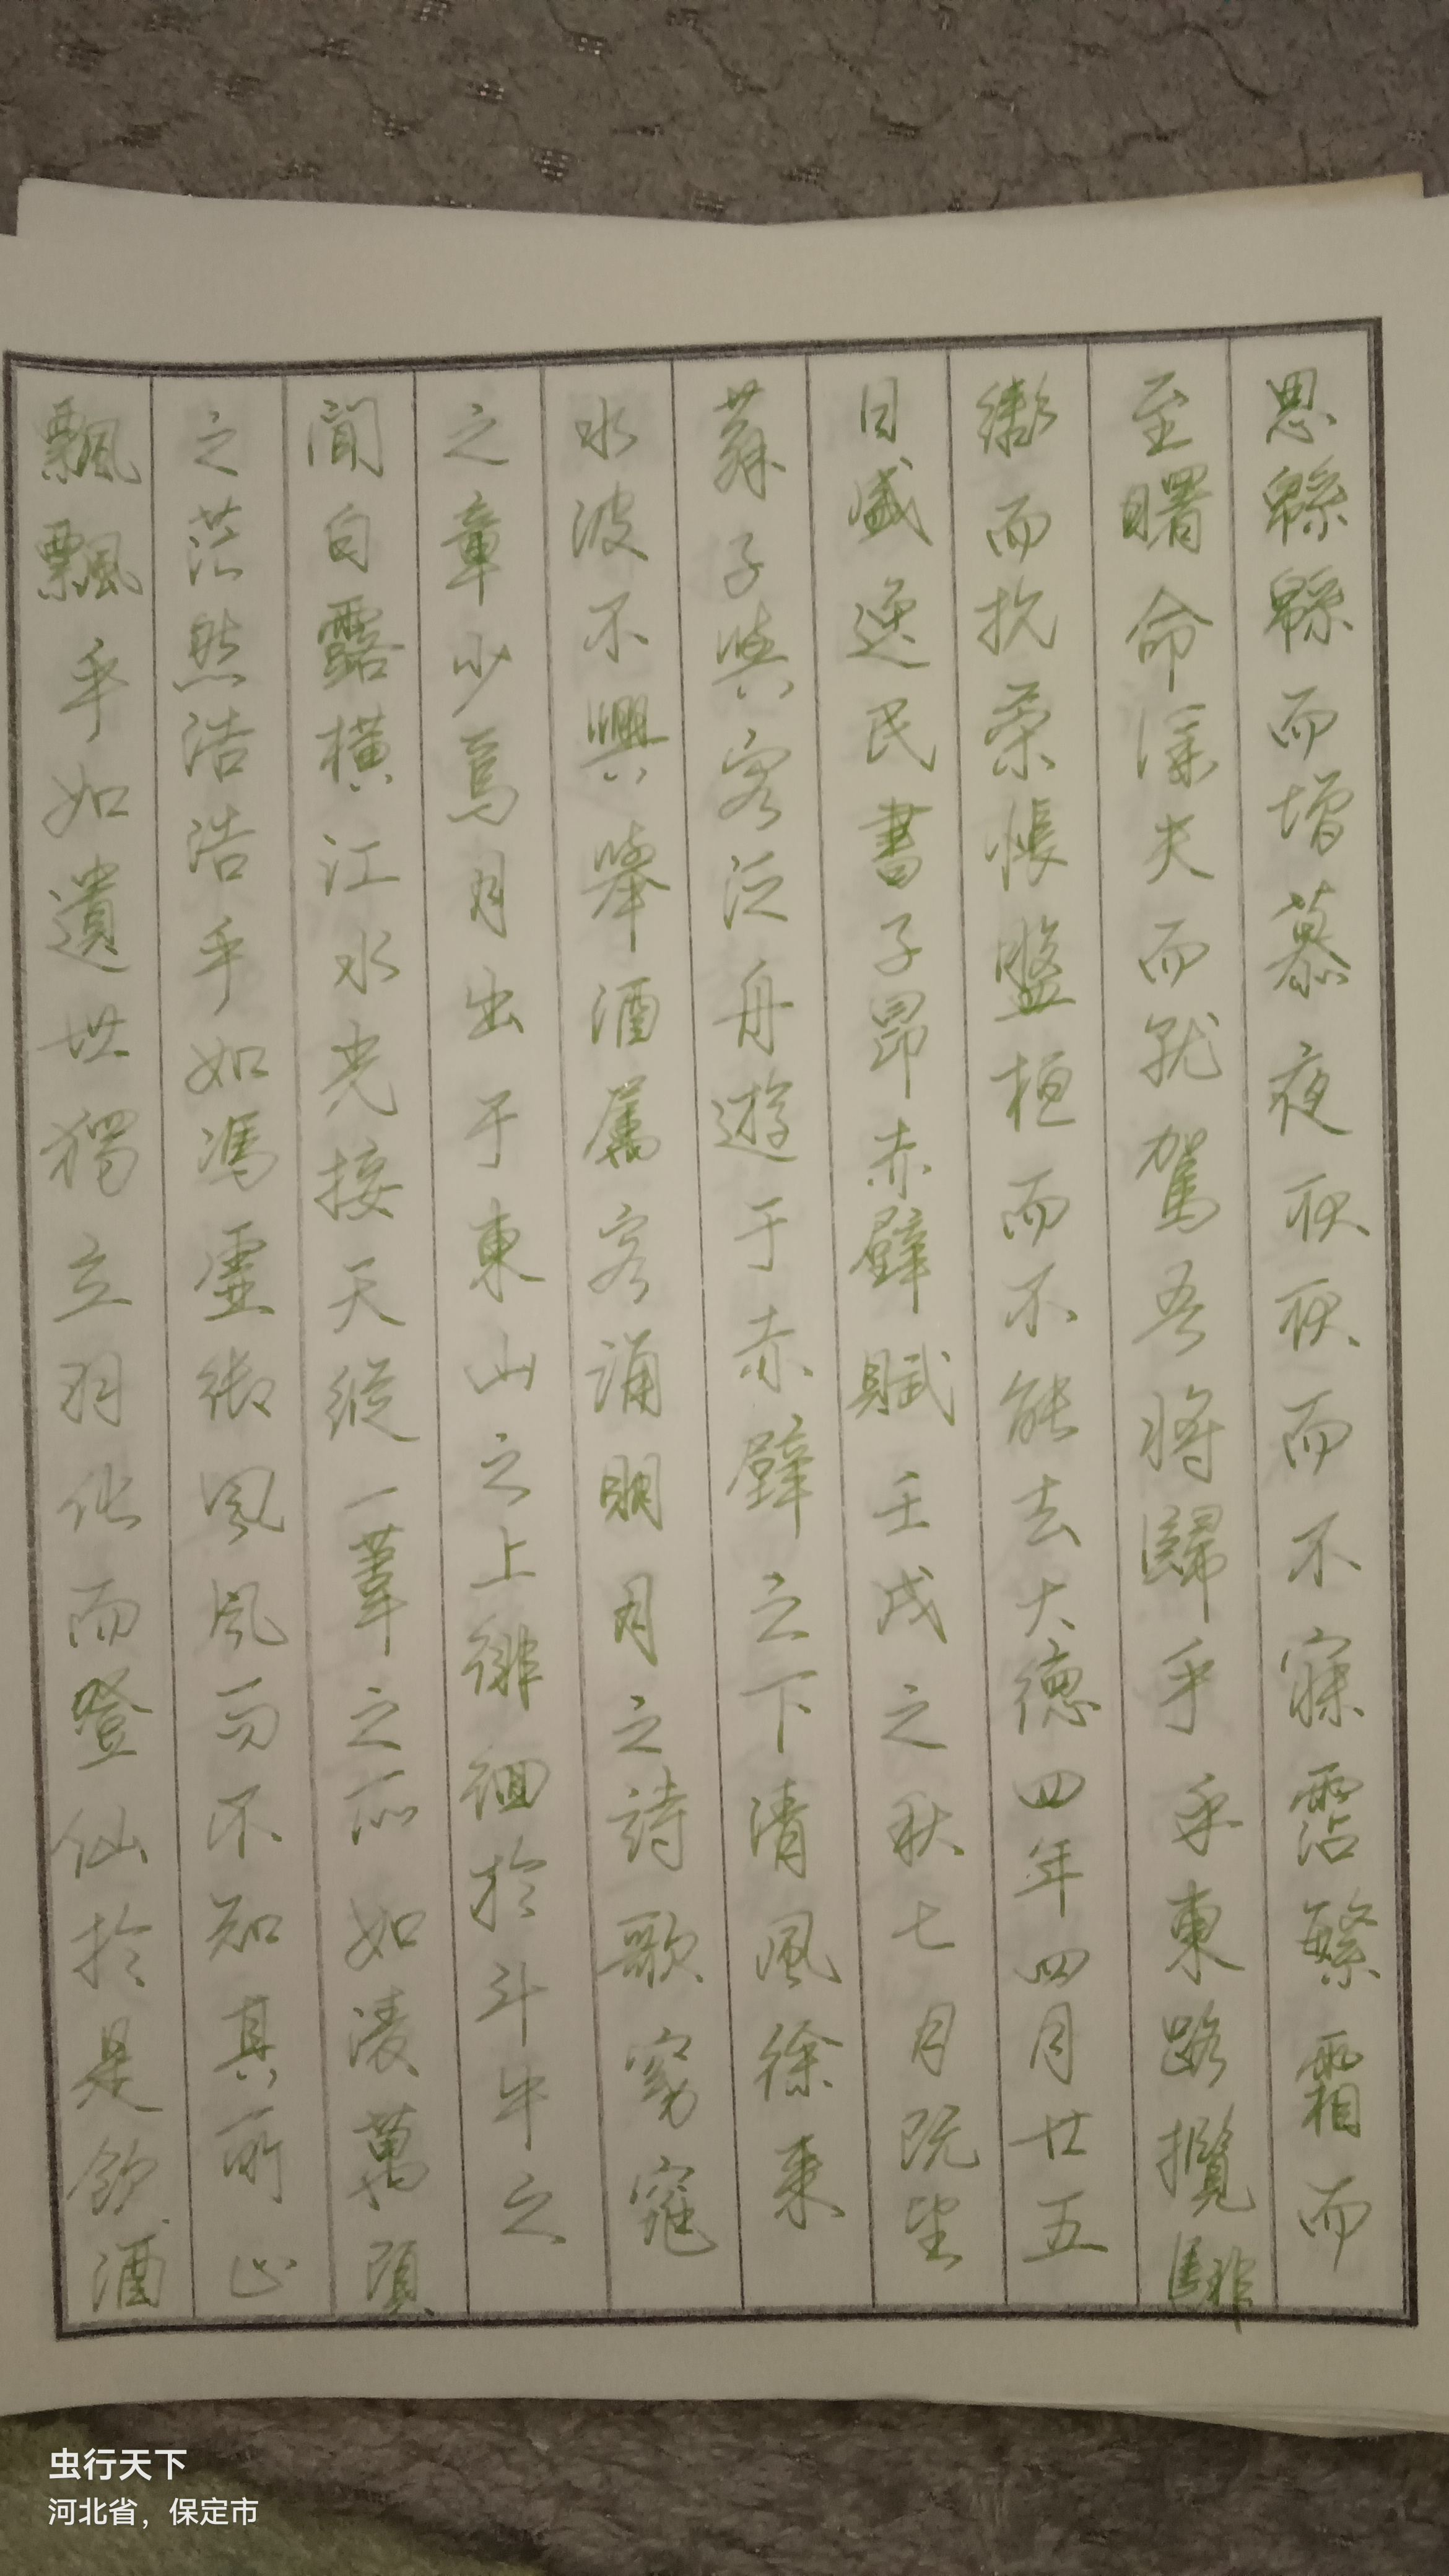 思緜緜而增慕夜耿耿而不寐霑繁霜而
至曙命僕夫而就駕吾將歸乎東路攬騑
轡而抗策悵盤桓而不能去大德四年四月廿五
日盛逸民書子昂赤壁賦 壬戌之秋七月既望
蘇子與客泛舟遊于赤壁之下清風徐來
水波不興舉酒屬客誦明月之詩歌窈窕
之章少焉月出于東山之上徘徊於斗牛之
間白露橫江水光接天縱一葦之所如凌萬頃
之茫然浩浩乎如馮虛御風風而不知其所止
飄飄乎如遺世獨立羽化而登仙於是飲酒
虫行天下
河北省，保定市